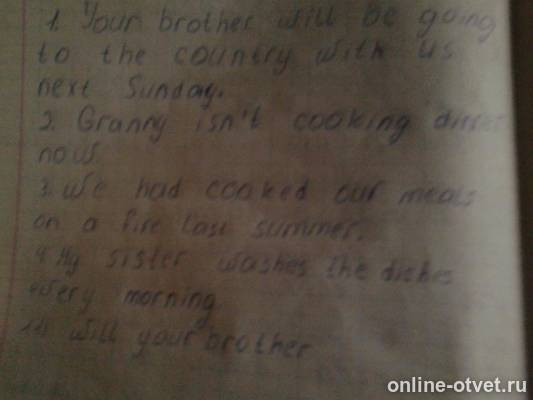 1. Your brother will be going
to the country with us
next Sunday.
2. Granny isn't cooking dinner
now.
3. We had cooked our meals
on a fire last summer.
4. My sister washes the dishes
every morning
will your brother
online-otvet.ru